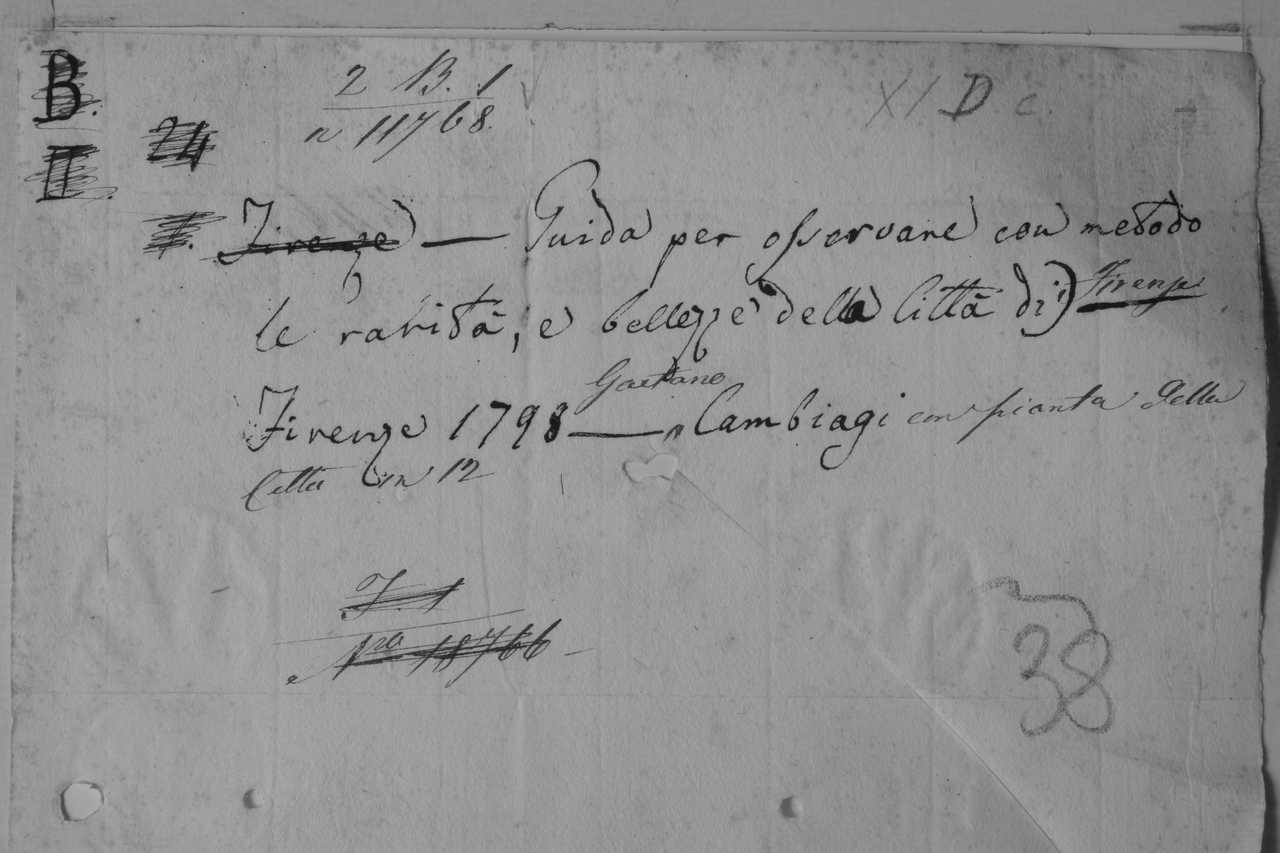 B.
2 B. 1
XI D c.
n 11768.
24
II.
Firenze — Guida per osservare con metodo
le rarità, e bellezze della Città di) Firenze
Gaetano
Firenze 1798 — Cambiagi con pianta della
Città in 12
F. 1
Nro 18766
38